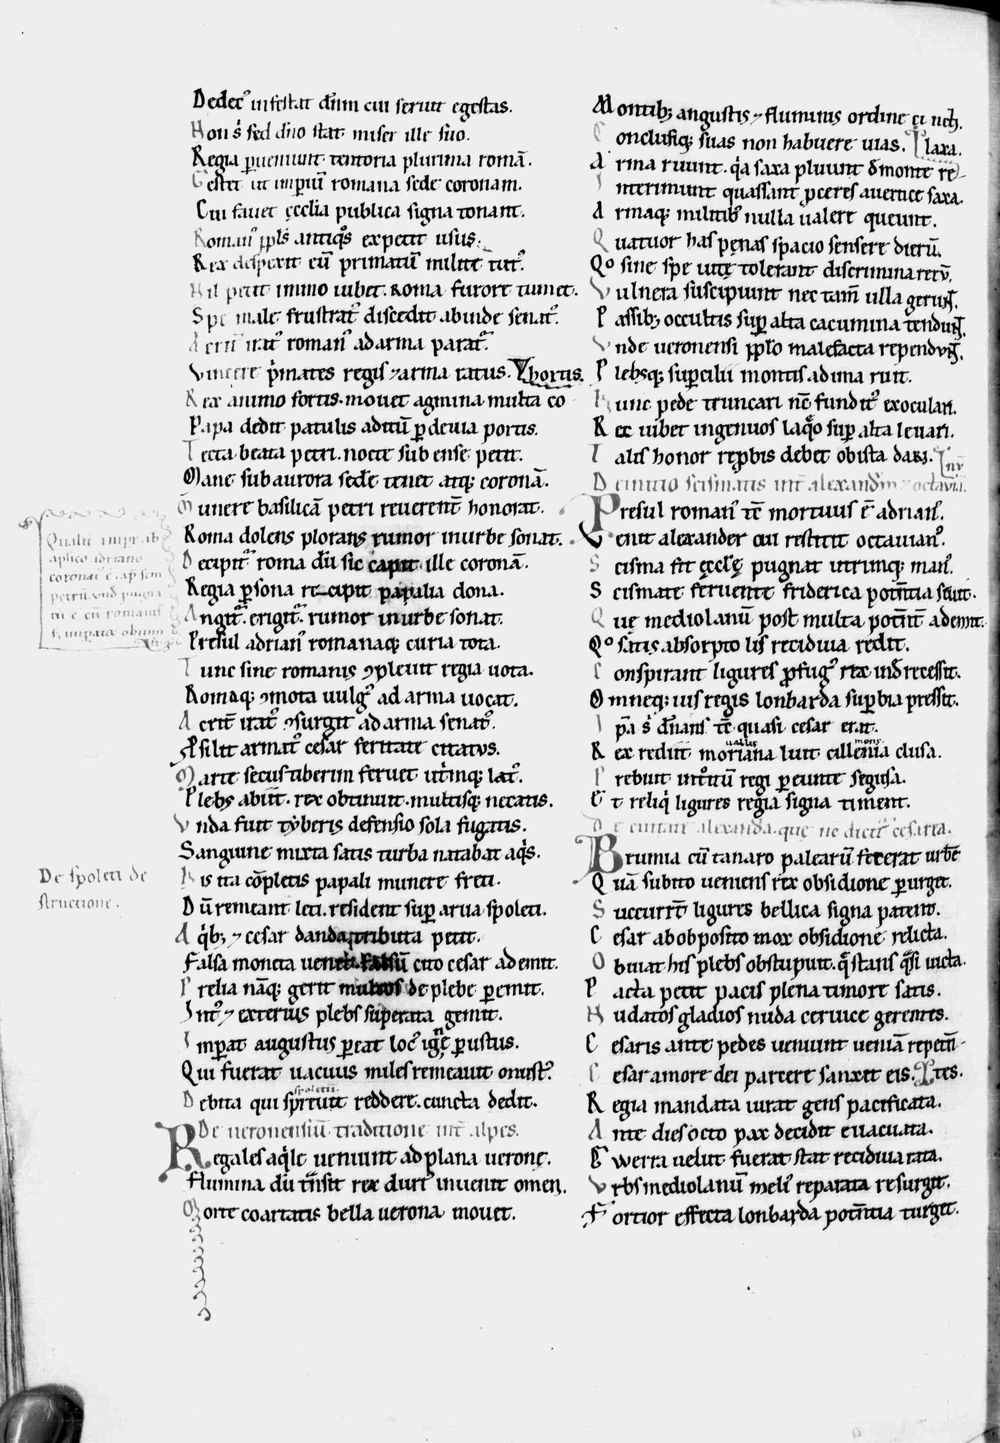 Dedec᷒ infestat dn̄m cui seruit egestas.
Non s᷒ sed dn̄o stat miser ille suo.
Regia ꝑueniunt tentoria plurima romā.
Gestit ut imꝑiū romana sede coronam.
Cui fauet ęcclia publica signa tonant.
Roman᷒ ppl̄s antiq᷒s expetit usus.
Rex despexit eū primatū milite tut᷒.
Nil petit immo iubet. Roma furore tumet.
Spe male frustrat᷒ discedit abinde senat᷒.
Acrit᷒ irat᷒ roman᷒ ad arma parat᷒.
Vincere p̄mates regis ⁊ arma ratus.
Rex animo fortis. mouet agmina multa cohortis.
Papa dedit patulis aditū ꝑ deuia portis.
Tecta beata petri. nocte sub ense petit.
Mane sub aurora sedē tenet atq; coronā.
Munere basilicā petri reuerent᷒ honorat.
Roma dolens plorans rumor in urbe sonat.
Decipit᷒ roma dū sic capit ille coronā.
Regia ꝑsona recipit papalia dona.
Angit᷒. erigit᷒. rumor in urbe sonat.
Presul adrian᷒ romanaq; curia tota.
Tunc sine romanis ꝯpleuit regia uota.
Romaq; ꝯmota uulg᷒ ad arma uocat.
Acrit᷒ irat᷒ ꝯsurgit ad arma senat᷒.
Prosilit armat᷒ cesar feritate citatus.
Marte secus tiberim feruet utrinq; lat᷒.
Plebs abiit. rex obtinuit. multisq; necatis.
Vnda fuit tyberis defensio sola fugatis.
Sanguine mixta satis turba natabat aq̄s.
His ita cōpletis papali munere freti.
Dū remeant leti. resident suꝑ arua spoleti.
A q̄b; ⁊ cesar danda tributa petit.
Falsa moneta uenit falsū cito cesar ademit.
Prelia nāq; gerit multos de plebe ꝑemit.
Int᷒ ⁊ exterius plebs superata gemit.
Imꝑat augustus ꝑeat loc᷒ igne ꝑustus.
Qui fuerat uacuus miles remeauit onust᷒.
spoletū.
Debita qui spreuit reddere. cuncta dedit.
De ueronensiū traditione int᷒ alpes.
Regales aq̄le ueniunt ad plana ueronę.
Flumina dū trāsit rex dur᷒ inuenit omen.
Morte coartatis bella uerona mouet.
Qualit᷒ impr̄ ab
aplico adriano
coronat᷒ ē ap̄ scm
petrū. vnd pugna
De spoleti de
structione.
Montib; angustis ⁊ fluminis ordine cinctis.
Conclusiq; suas non habuere uias.
Arma ruunt. q̄a saxa pluunt de monte relaxa.
Interimunt quassant proceres a uertice saxa.
Armaq; militib᷒ nulla ualere queunt.
Quatuor has penas spacio sensere dierū.
Qo sine spe uitę tolerant discrimina rerū.
Vulnera suscipiunt nec tam̄ ulla gerunt.
Passib; occultis suꝑ alta cacumina tendunt.
Vnde ueronensi pplo malefacta rependunt.
Plebsq; suꝑcilii montis ad ima ruit.
Hunc pede truncari nē fundit᷒ exoculari.
Rex iubet ingenuos laqueo suꝑ alta leuari.
Talis honor reprobis debet obista dari.
De initio scismatis int᷒ alexandrin ⁊ octauianū.
Presul roman᷒ tē mortuus ē adrian᷒.
Venit alexander cui restitit octauian᷒.
Scisma fit ęcclę pugnat utrinq; man᷒.
Scismate feruente friderica potn̄tia seuit.
Quę mediolanū post multa potent᷒ ademit.
Qo satis absorpto lis rediuiua redit.
Conspirant ligures profug᷒ rex inde recessit.
Omneq; ius regis lonbarda suꝑbia pressit.
Ipa s᷒ dn̄ans tē quasi cesar erat.
uallis mons
Rex rediit moriana luit cillenia clusa.
Prebuit introitū regi ꝑeunte segusa.
Et reliq᷒ ligures regia signa timent.
De ciuitate alexandᷓa. que nē dicit᷒ cesaria.
Brumia cū tanaro palearū fecerat urbē
Quā subito ueniens rex obsidione ꝑurget.
Succurrt̄ ligures bellica signa patent.
Cesar ab obposito mox obsidione relicta.
Obuiat his plebs obstupuit. q̄ stans q̄si uicta.
Pacta petit pacis plena timore satis.
Nudatos gladios nuda ceruice gerentes.
Cesaris ante pedes ueniunt ueniā repetentes.
Cesar amore dei parcere sanxit eis.
Regia mandata iurat gens pacificata.
Ante dies octo pax decidit euacuata.
Gwerra uelut fuerat stat rediuiua rata.
Vrbs mediolanū meli᷒ reparata resurgit.
Fortior effecta lonbarda potn̄tia turget.